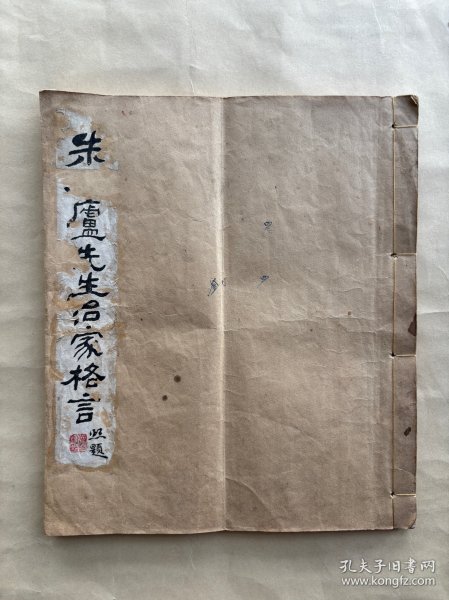 朱
廬先生治家格言
題
孔夫子旧书网
www.kongfz.com